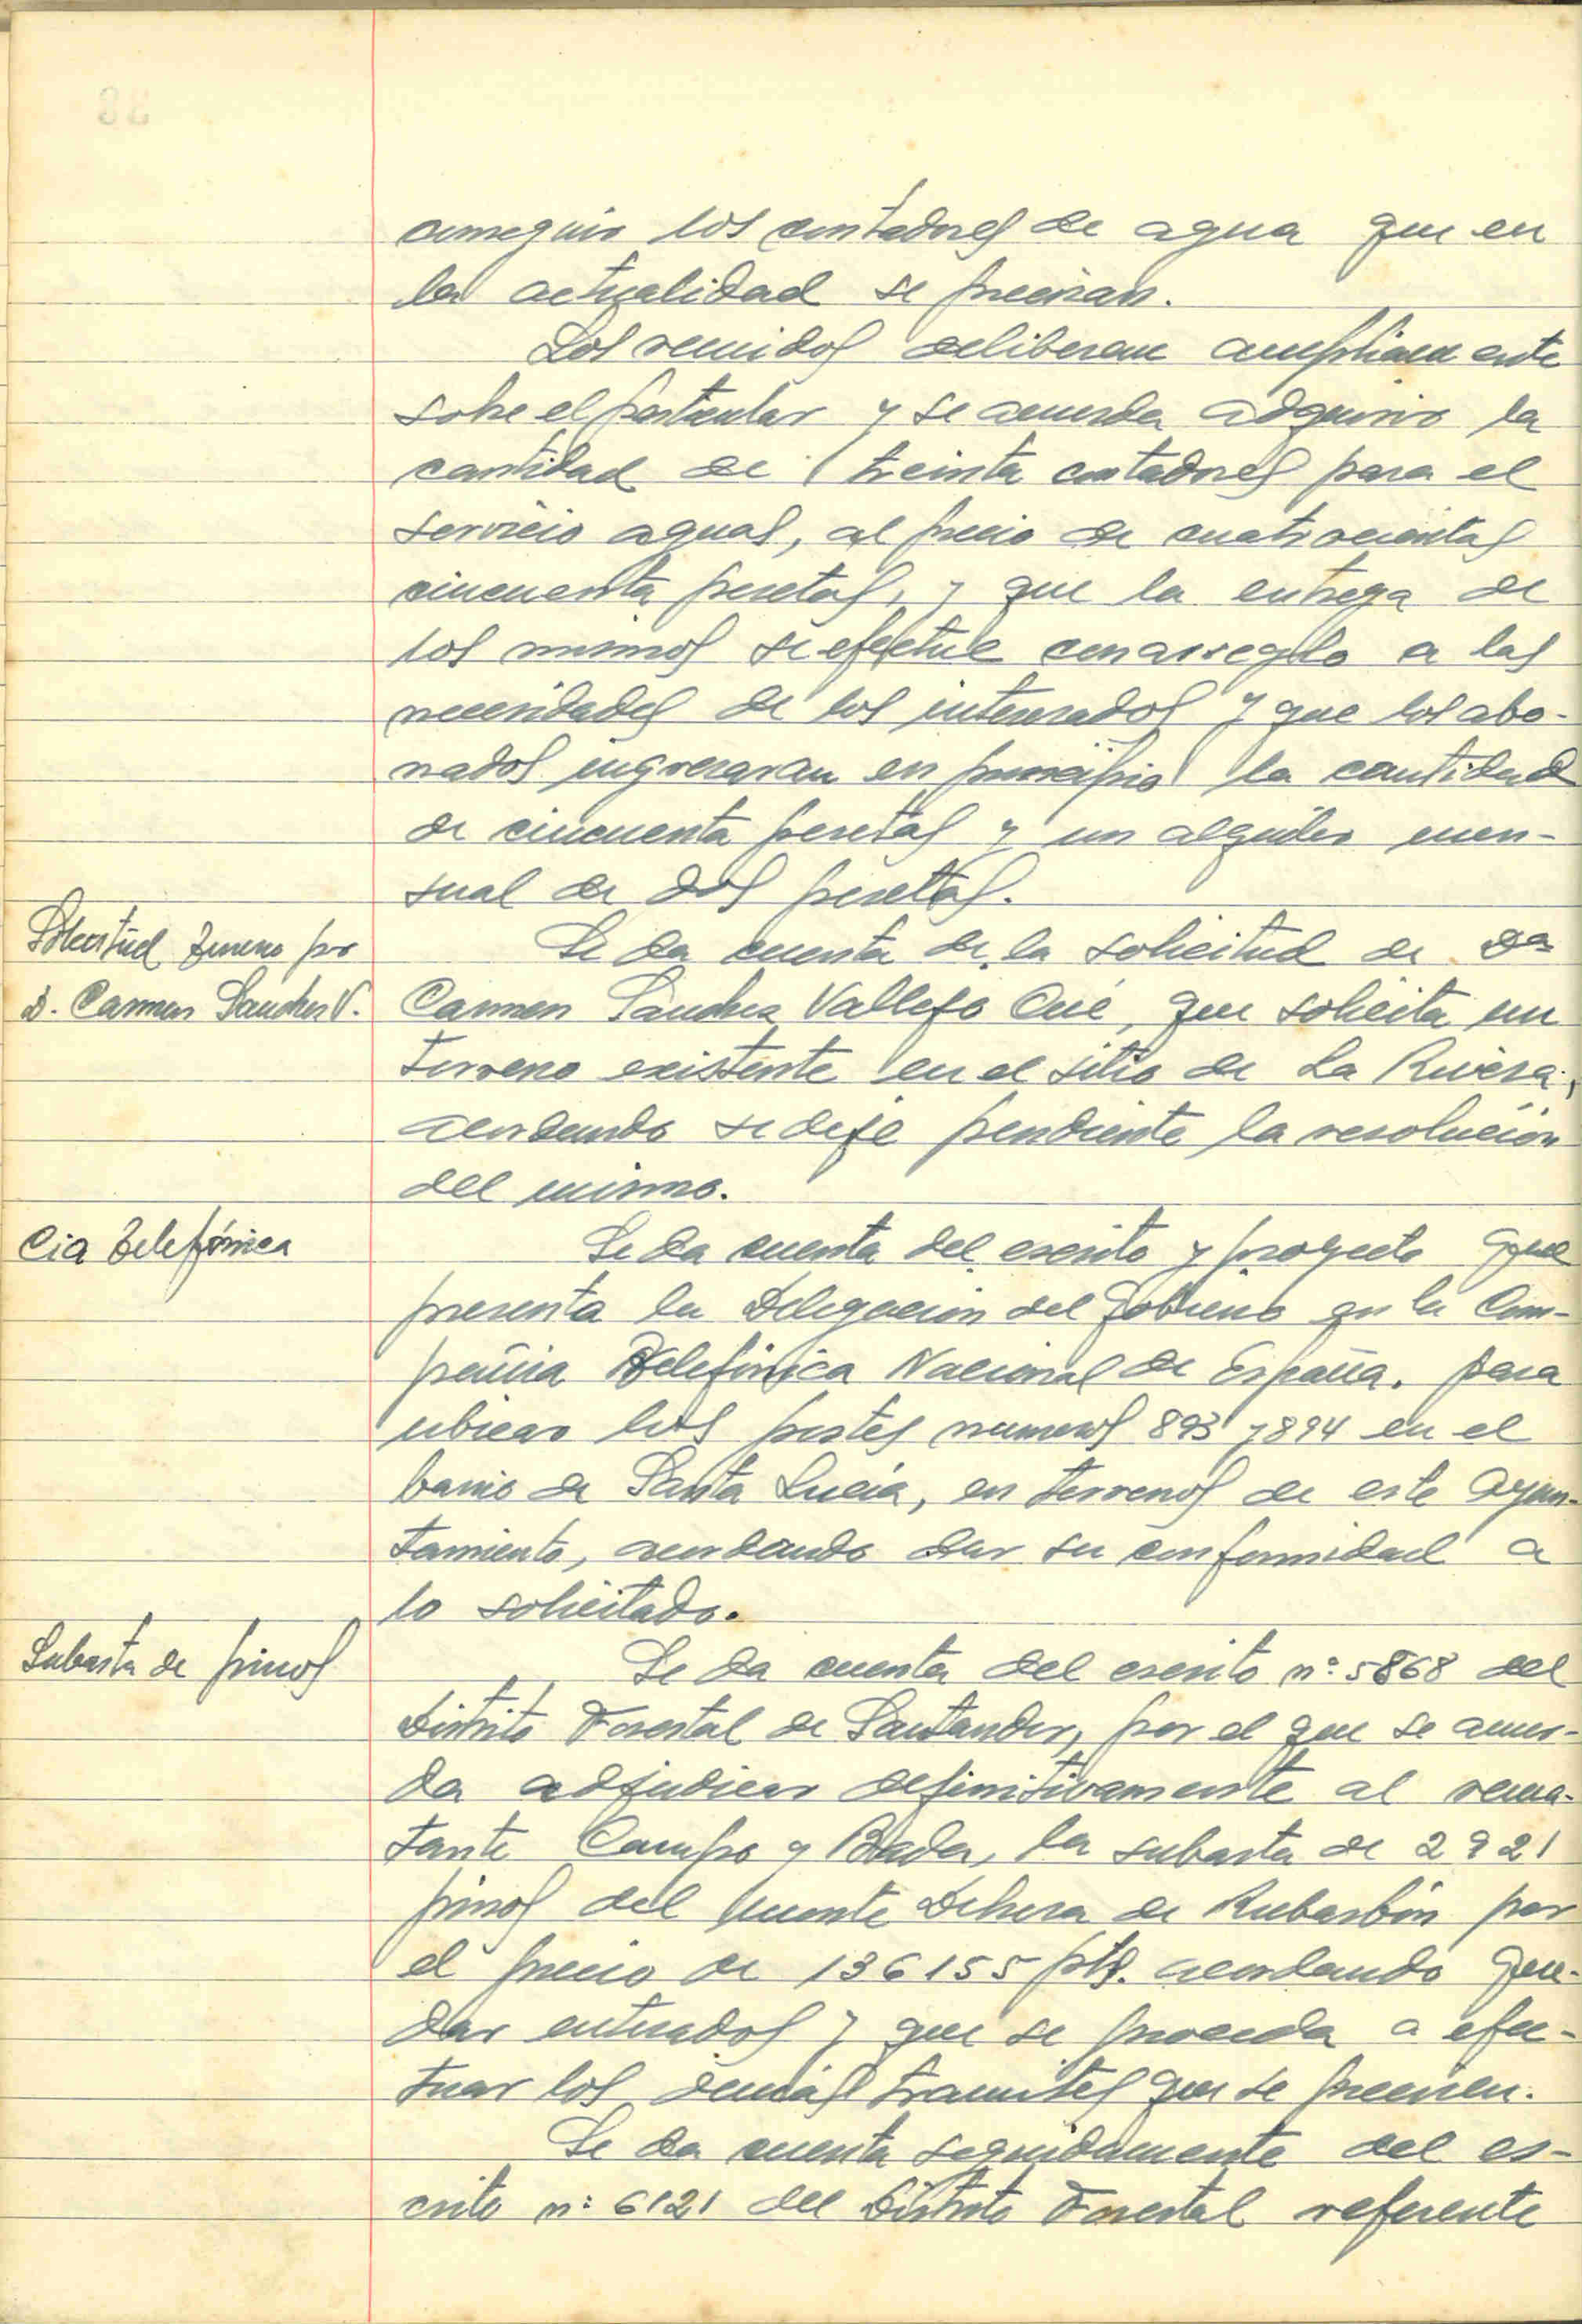 conseguir los contadores de agua que en
la actualidad se precisan.
Los reunidos deliberan ampliamente
sobre el particular y se acuerda adquirir la
cantidad de treinta contadores para el
servicio aguas, al precio de cuatrocientas
cincuenta pesetas, y que la entrega de
los mismos se efectue con arreglo a las
necesidades de los interesados y que los abo-
nados ingresaran en principio la cantidad
de cincuenta pesetas y un alquiler men-
sual de dos pesetas.
Solicitud Terreno por
D. Carmen Sanchez V.
Se da cuenta de la solicitud de Dª
Carmen Sanchez Vallejo Cué, que solicita un
terreno existente en el sitio de La Rivera,
acordando se deje pendiente la resolución
del mismo.
Cia Telefónica
Se da cuenta del escrito y proyecto que
presenta la Delegacion del Gobierno en la Com-
pañia Telefónica Nacional de España. para
ubicar los postes numeros 893 y 894 en el
barrio de Santa Lucía, en terrenos de este Ayun-
tamiento, acordando dar su conformidad a
lo solicitado.
Subasta de pinos
Se da cuenta del escrito nº 5868 del
Distrito Forestal de Santander, por el que se acuer-
da adjudicar definitivamente al rema-
tante Campo y Bada, la subasta de 2921
pinos del monte Dehesa de Rubarbón por
el precio de 136155 pts. acordando que-
dar enterados y que se proceda a efec-
tuar los demás tramites que se precisen.
Se da cuenta seguidamente del es-
crito nº 6121 del Distrito Forestal referente